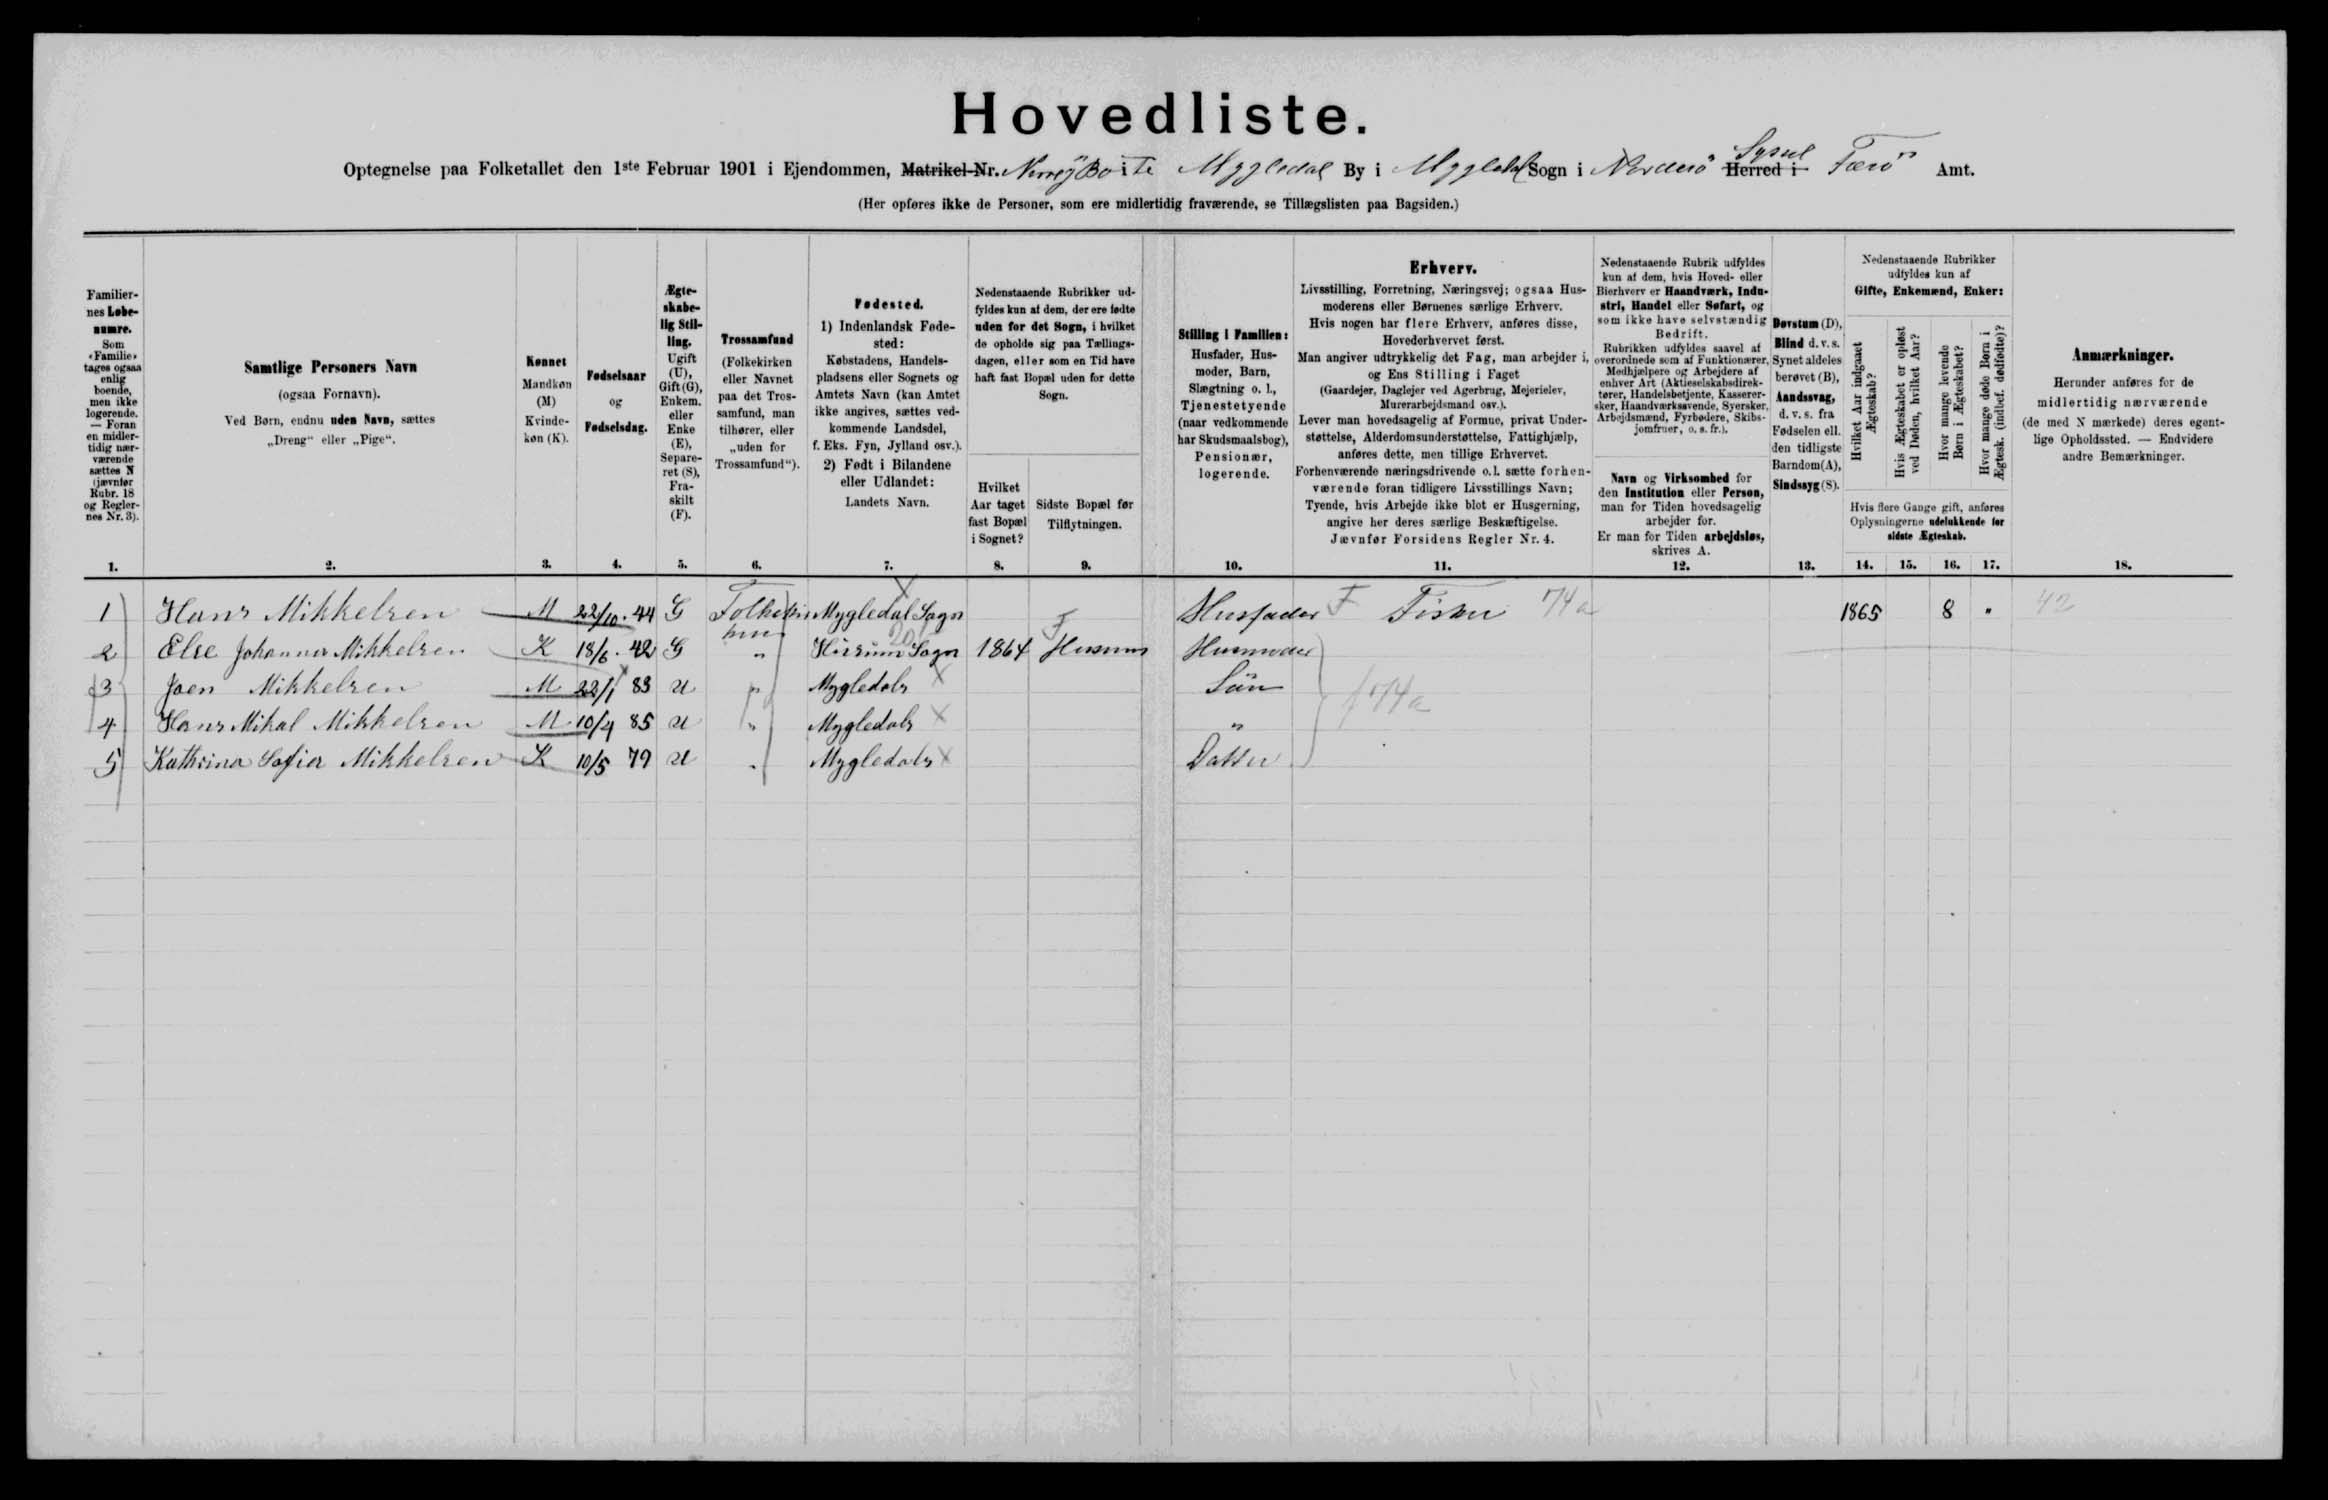 Hovedliste.
Optegnelse paa Folketallet den 1ste Februar 1901 i Ejendommen, Matrikel-Nr. Mygledal By i Mygledal Sogn i Norderö Sysel Herred i Færö Amt.
(Her opføres ikke de Personer, som ere midlertidig fraværende, se Tillægslisten paa Bagsiden.)
Familier-
nes Løbe-
numre.
Som
«Familie»
tages ogsaa
enlig
boende,
men ikke
logerende.
— Foran
en midler-
tidig nær-
værende
sættes N
(jævnfør
Rubr. 18
og Regler-
nes Nr. 3).
1.
Samtlige Personers Navn
(ogsaa Fornavn).
Ved Børn, endnu uden Navn, sættes
„Dreng" eller „Pige".
2.
Kønnet
Mandkøn
(M)
Kvinde-
køn (K).
3.
Fødselsaar
og
Fødselsdag.
4.
Ægte-
skabe-
lig Stil-
ling.
Ugift
(U),
Gift (G),
Enkem.
eller
Enke
(E),
Separe-
ret (S),
Fra-
skilt
(F).
5.
Trossamfund
(Folkekirken
eller Navnet
paa det Tros-
samfund, man
tilhører, eller
„uden for
Trossamfund").
6.
Fødested.
1) Indenlandsk Føde-
sted:
Købstadens, Handels-
pladsens eller Sognets og
Amtets Navn (kan Amtet
ikke angives, sættes ved-
kommende Landsdel,
f. Eks. Fyn, Jylland osv.).
2) Født i Bilandene
eller Udlandet:
Landets Navn.
7.
Nedenstaaende Rubrikker ud-
fyldes kun af dem, der ere fødte
uden for det Sogn, i hvilket
de opholde sig paa Tællings-
dagen, eller som en Tid have
haft fast Bopæl uden for dette
Sogn.
Hvilket
Aar taget
fast Bopæl
i Sognet?
8.
Sidste Bopæl før
Tilflytningen.
9.
Stilling i Familien:
Husfader, Hus-
moder, Barn,
Slægtning o. l.,
Tjenestetyende
(naar vedkommende
har Skudsmaalsbog),
Pensionær,
logerende.
10.
Erhverv.
Livsstilling, Forretning, Næringsvej; ogsaa Hus-
moderens eller Børnenes særlige Erhverv.
Hvis nogen har flere Erhverv, anføres disse,
Hovederhvervet først.
Man angiver udtrykkelig det Fag, man arbejder i,
og Ens Stilling i Faget
(Gaardejer, Daglejer ved Agerbrug, Mejerielev,
Murerarbejdsmand osv.).
Lever man hovedsagelig af Formue, privat Under-
støttelse, Alderdomsunderstøttelse, Fattighjælp,
anføres dette, men tillige Erhvervet.
Forhenværende næringsdrivende o.l. sætte forhen-
værende foran tidligere Livsstillings Navn;
Tyende, hvis Arbejde ikke blot er Husgerning,
angive her deres særlige Beskæftigelse.
Jævnfør Forsidens Regler Nr. 4.
11.
Nedenstaaende Rubrik udfyldes
kun af dem, hvis Hoved- eller
Bierhverv er Haandværk, Indu-
stri, Handel eller Søfart, og
som ikke have selvstændig
Bedrift.
Rubrikken udfyldes saavel af
overordnede som af Funktionærer,
Medhjælpere og Arbejdere af
enhver Art (Aktieselskabsdirek-
tører, Handelsbetjente, Kasserer-
sker, Haandværkssvende, Syersker,
Arbejdsmænd, Fyrbødere, Skibs-
jomfruer, o. s. fr.).
Navn og Virksomhed for
den Institution eller Person,
man for Tiden hovedsagelig
arbejder for.
Er man for Tiden arbejdsløs,
skrives A.
12.
Døvstum (D),
Blind d. v. s.
Synet aldeles
berøvet (B),
Aandssvag,
d. v. s. fra
Fødselen ell.
den tidligste
Barndom (A),
Sindssyg (S).
13.
Nedenstaaende Rubrikker
udfyldes kun af
Gifte, Enkemænd, Enker:
Hvilket Aar indgaaet
Ægteskab?
Hvis Ægteskabet er opløst
ved Døden, hvilket Aar?
Hvor mange levende
Børn i Ægteskabet?
Hvor mange døde Børn i
Ægtesk. (indbef. dødfødte)?
Hvis flere Gange gift, anføres
Oplysningerne udelukkende for
sidste Ægteskab.
14. 15. 16. 17.
Anmærkninger.
Herunder anføres for de
midlertidig nærværende
(de med N mærkede) deres egent-
lige Opholdssted. — Endvidere
andre Bemærkninger.
18.
1 Hans Mikkelsen M 22/10 . 44 G Folkekir Mygledal Sogn Husfader F Fisker 74a 1865 8 " 42
2 Else Johanna Mikkelsen K 18/6 . 42 G " Husum Sogn 20 1864 F Husum Husmoder
3 Joen Mikkelsen M 22/1 83 U " Mygledals Sön f 74a
4 Hans Mikal Mikkelsen M 10/4 85 U " Mygledals "
5 Kathrina Sofia Mikkelsen K 10/5 79 U " Mygledals Datter